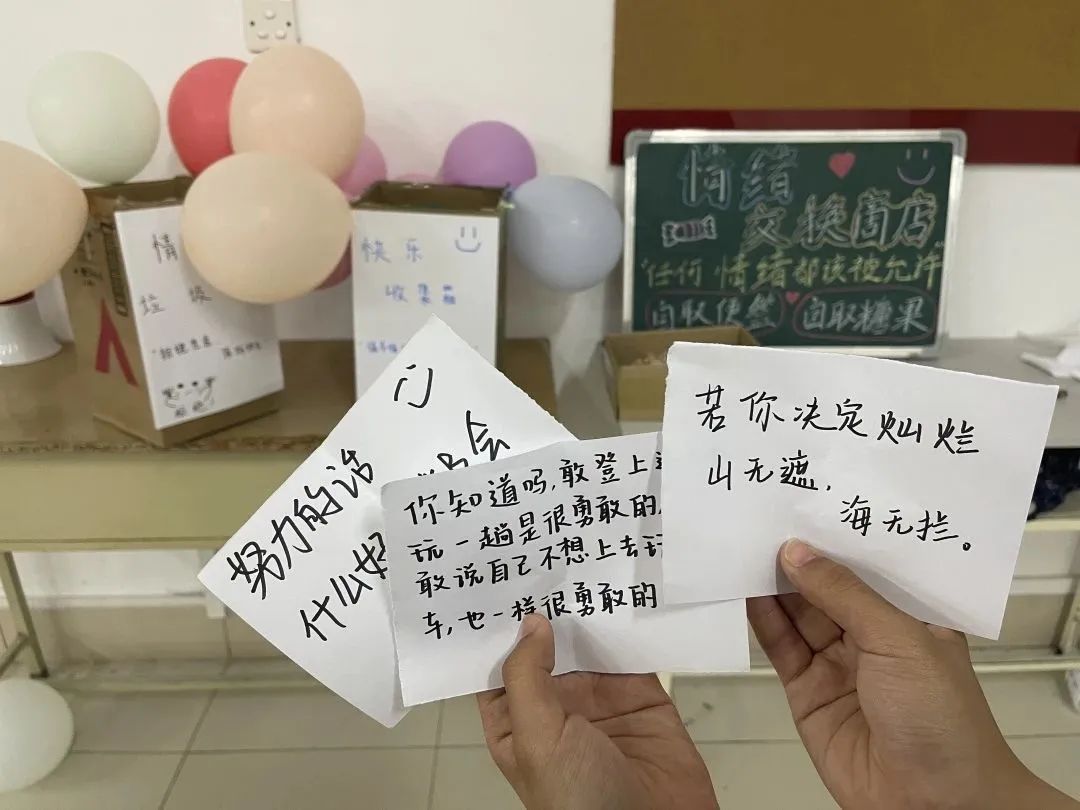 情绪
交换商店
"任何情绪都该被允许"
自取便然
自取糖果
情
垃圾
快乐
收集
努力的话
什么
会
你知道吗,敢登上
玩一趟是很勇敢的
敢说自己不想上去玩
车,也一样很勇敢的
若你决定灿烂
山无遮,
海无拦。